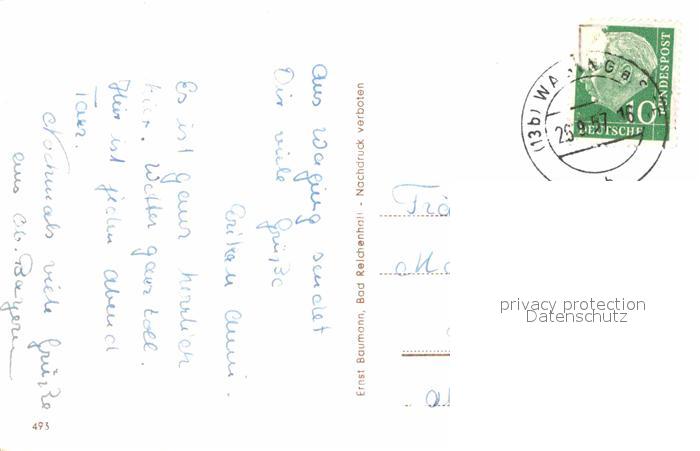 Aus Waging sendet
Dir viele
Grüße
Erika u. Anni.
Es ist ganz herrlich
hier. Wetter ganz toll.
Hier ist jeden Abend
Tanz.
Nochmals viele Grüße
aus Ob. Bayern
493
Ernst Baumann, Bad Reichenhall - Nachdruck verboten
(13b) WAGING
25.9.57.16
DEUTSCHE
BUNDESPOST
10
Frä
privacy protection
Datenschutz